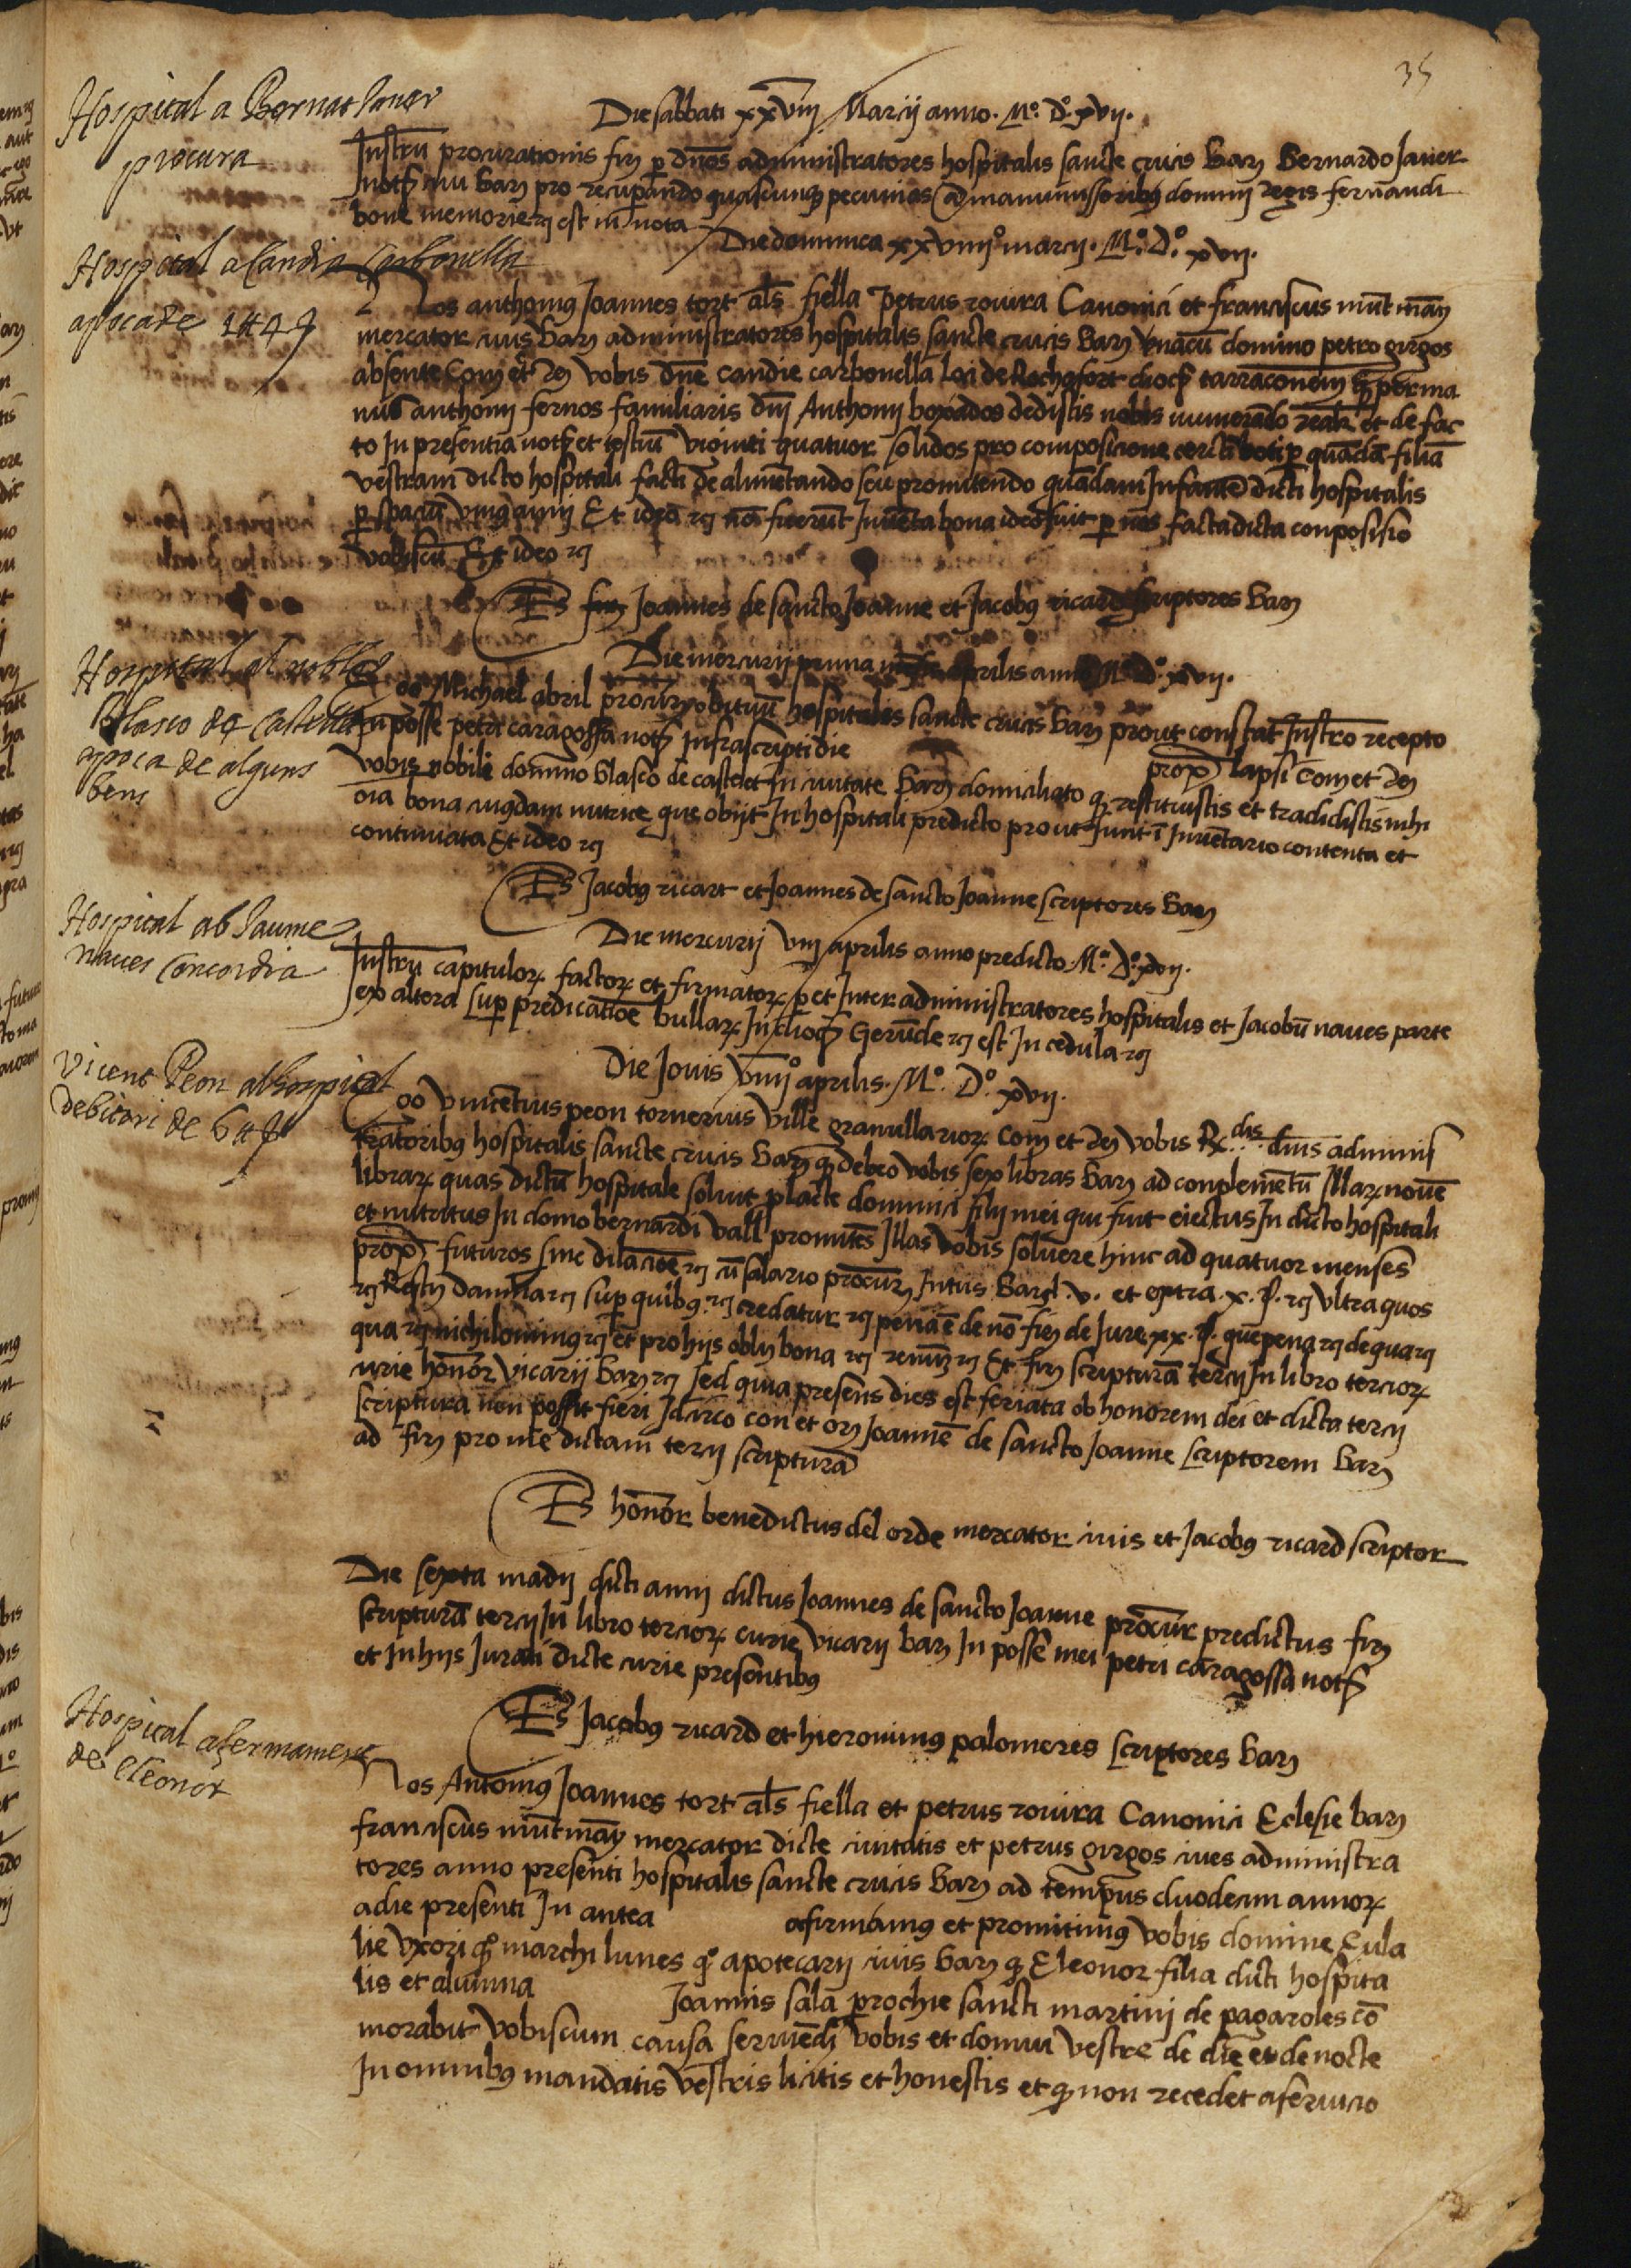 35
Hospital a Bernat Janer
procura
Die sabbati xxviij Marcij anno. Mº. Dº. xvij.
Instru procurationis fir͂ ꝑ dños administratores hospitalis sancte crucis Bar͂ Bernardo Janer
notͬ ciui Bar͂ pro recuperando quascunqꝫ pecunias a manumissoribꝫ domini regis fernandi
bone memorie ꝛc est in nota
Hospital a Candia Carbonella
apoca de 1 ₶ 4 ß
Die dominica xxviiijº marcij. Mº. Dº. xvij.
Nos anthoniꝰ Joannes tort als̄ fiella petrus rouira Canonici et franciscus muntmāy
mercator ciuis Bar͂ administratores hospitalis sancte crucis Bar͂ vnacū domino petro girgos
absente Com et rͤ vobis dn̄e candie carbonella loci de Rochafort dioc̄ tarraconen̄ ꝙ per ma
nus anthonij fernos familiaris dn̄j Anthonij boxados dedistis nobis numerādo realr̄ et de fac
to In presentia notͬ et testiū viginti quatuor solidos pro composicione certi voti ꝑ quādā filiā
vestram dicto hospitali facti de alimētando seu promitendo quādam Infantē dicti hospitalis
ꝑ spaciū vniꝰ anni Et ideo ꝛc nō fuerūt Inuēta bona ideo fuit ꝑ nos facta dicta composisio
vobiscū Et ideo ꝛc
Ts fir͂ Joannes de sancto Joanne et Jacobꝰ ricard scriptores Bar͂
Hospital al noble
Blasco de Castellet
apoca de alguns
bens
Die mercurij prima aprilis anno Mº. Dº. xvij.
Ego Michael abril procur͂ obituū hospitales sancte crucis Bar͂ prout constat Instr̄o recepto
In posse petri caragossa notͬ Infrascripti die prox̄ lapsi Com et rͤ
vobis nobili domino blasco de castelet In ciuitate Bar͂ domiciliato ꝙ restituistis et tradidistis mihi
oīa bona cuiꝰdam nutrice que obijt In hospitali predicto prout sunt ī Inuētario contenta et
continuata Et ideo ꝛc
Ts Jacobꝰ ricart et Joannes de sancto Joanne scriptores Bar͂
Hospital ab Jaume
naues Concordia
Die mercurij viij aprilis anno predicto Mº. Dº. xvij.
Instru capitulorꝫ factorꝫ et firmatorꝫ ꝑ et Inter administratores hospitalis et Jacobū naues parte
ex altera suꝑ predicatiōe bullarꝫ In dioc̄ Gerūde ꝛc est In cedula ꝛc
Vicent Peon al hospital
debitori de 6 ₶
Die Jouis viiijº aprilis. Mº. Dº. xvij.
Ego vincētius peon tornerius ville granullariorꝫ Com et rͤ vobis Rͩⁱˢ dn̄is adminis
tratoribꝰ hospitalis sancte crucis Bar͂ ꝙ debeo vobis sex libras Bar͂ ad conplemētū Illarꝫ nouē
librarꝫ quas dictū hospitale soluit ꝑ lacte dominici filij mei qui fuit eiectus In dicto hospitali
et nutritus In domo bernardi vall promitēs Illas vobis soluere hinc ad quatuor menses
prox̄ futuros sine dilaciōe ꝛc cū salario procur͂ Intus Bar͂ .v. et extra .x. ß. ꝛc vltra quos
ꝛc Restͭ damna ꝛc suꝑ quibꝰ ꝛc credatur ꝛc penā ē de nō fir͂ de Jure xx. ß. que pena ꝛc de qua ꝛc
qua ꝛc nichilominꝰ ꝛc et pro hijs obliͬ bona ꝛc renūͬ ꝛc Et fir͂ scripturā tercij In libro terciorꝫ
curie honor͂ vicarij Bar͂ ꝛc sed quia presens dies est feriata ob honorem dei et dicta tercij
scriptura non possit fieri Idcirco con et or͂ Joannē de sancto Joanne scriptorem Bar͂
ad fir͂ pro me dictam tercij scripturā
Ts honor͂ benedictus del orde mercator ciuis et Jacobꝰ ricard scriptor
Die sexta madij dicti anni dictus Joannes de sancto Joanne procur͂ predictus fir͂
scripturā tercij In libro terciorꝫ curie vicarij bar͂ In posse mei petri caragossa notͬ
et In hijs Jurati dicte curie presentibꝰ
Ts Jacobꝰ ricard et hieronimꝰ palomeres scriptores Bar͂
Hospital afermament
de Eleonor
Nos Antoniꝰ Joannes tort als̄ fiella et petrus rouira Canonici Eclesie bar͂
franciscus mūtmāy mercator dicte ciuitatis et petrus girgos ciues administra
tores anno presenti hospitalis sancte crucis Bar͂ ad tempus duodecim annorꝫ
a die presenti In antea afirmamꝰ et promitimꝰ vobis domine Eula
lie vxori qͦ marchi lunes qͦ apotecarij ciuis Bar͂ ꝙ Eleonor filia dicti hospita
lis et alumna Joannis sala ꝑrochie sancti martini de pagaroles cō
morabitͬ vobiscum causa seruiēdi vobis et domui vestre de die et de nocte
In omnibꝰ mandatis vestris licitis et honestis et ꝙ non recedet a seruicio